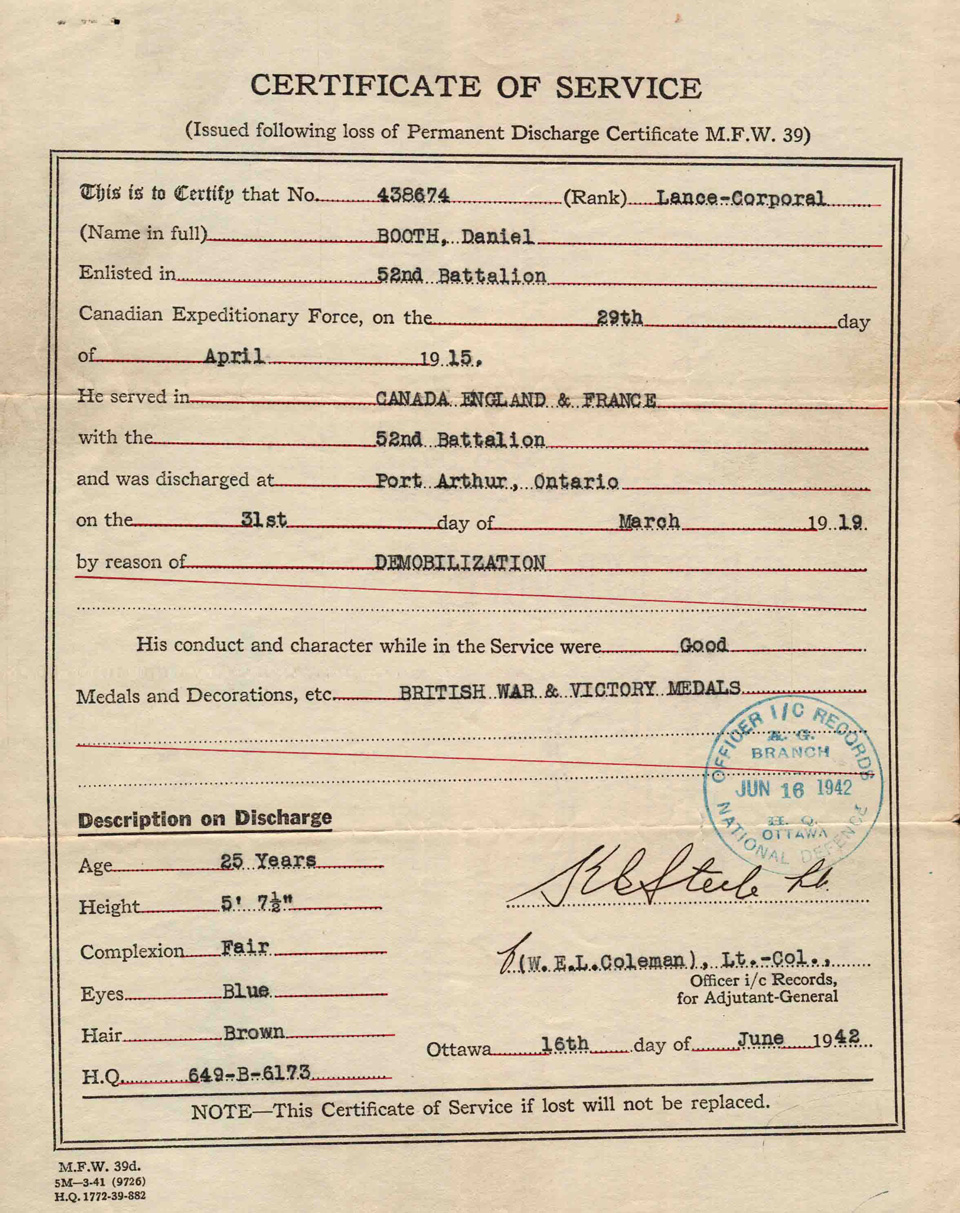 CERTIFICATE OF SERVICE
(Issued following loss of Permanent Discharge Certificate M.F.W. 39)
This is to Certify that No. 438674 (Rank) Lance-Corporal
(Name in full) BOOTH, Daniel
Enlisted in 52nd Battalion
Canadian Expeditionary Force, on the 29th day
of April 1915,
He served in CANADA ENGLAND & FRANCE
with the 52nd Battalion
and was discharged at Port Arthur, Ontario
on the 31st day of March 1919.
by reason of DEMOBILIZATION
His conduct and character while in the Service were Good
Medals and Decorations, etc. BRITISH WAR & VICTORY MEDALS
OFFICER I/C RECORDS
A. G.
BRANCH
JUN 16 1942
H. Q.
OTTAWA
NATIONAL DEFENCE
Description on Discharge
Age 25 Years
Height 5' 7½"
Complexion Fair
Eyes Blue
Hair Brown
H.Q. 649-B-6173
K C Steele Lt.
(W. E.L.Coleman), Lt.-Col.,
Officer i/c Records,
for Adjutant-General
Ottawa 16th day of June 1942
NOTE—This Certificate of Service if lost will not be replaced.
M.F.W. 39d.
5M—3-41 (9726)
H.Q. 1772-39-882